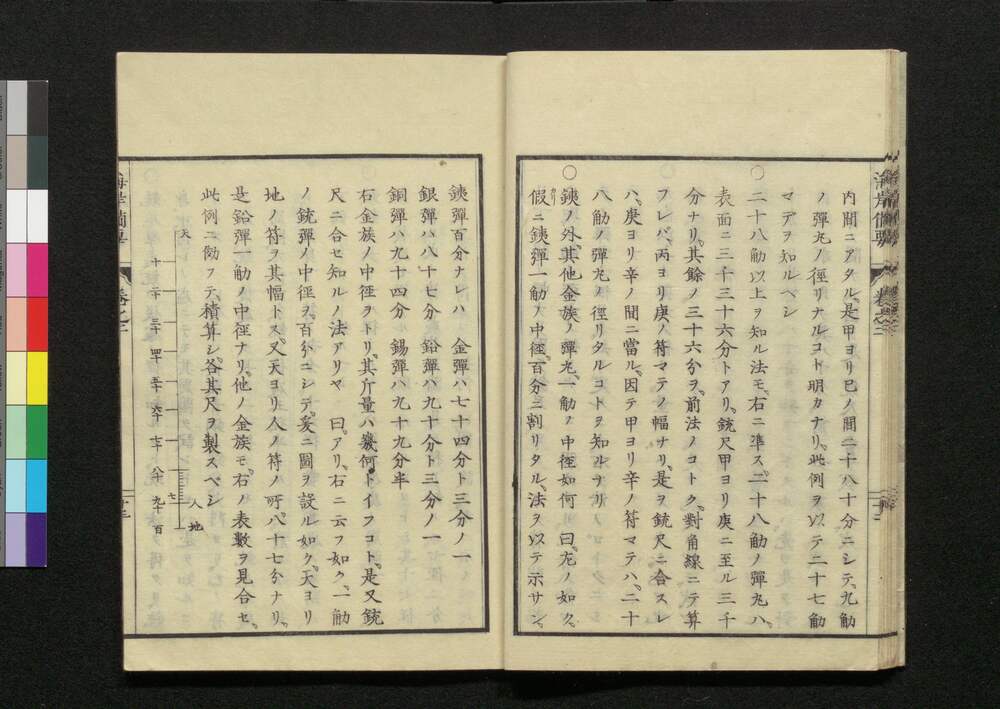 内間ニアタル、是甲ヨリ巳ノ間二十八十分ニシテ、九觔
ノ彈丸ノ徑リナルコト明カナリ、此例ヲ以テ二十七觔
マデヲ知ルベシ
○二十八觔以上ヲ知ル法モ、右ニ準ス、二十八觔ノ彈丸ハ、
表面ニ三千三十六分トアリ、銃尺甲ヨリ庚ニ至ル三千
分ナリ、其餘ノ三十六分ヲ、前法ノコトク、對角線ニテ算
フレバ、丙ヨリ庚ノ符マテノ幅ナリ、是ヲ銃尺ニ合スレ
ハ、庚ヨリ辛ノ間ニ當ル、因テ甲ヨリ辛ノ符マテハ、二十
八觔ノ彈丸ノ徑リタルコトヲ知ルナリ
○鐵ノ外、其他金族ノ彈丸、一觔ノ中徑如何、曰、左ノ如ク、
假ニ鐵彈一觔ノ中徑、百分ニ割リタル、法ヲ以テ示サン、
海岸備要
卷之二
鐵彈百分ナレハ 金彈ハ七十四分ト三分ノ一
銀彈ハ八十七分 鉛彈ハ九十分ト三分ノ一
銅彈ハ九十四分 錫彈ハ九十九分半
右金族ノ中徑ヲトリ、其斤量ハ幾何トイフコト、是又銃
尺ニ合セ知ルノ法アリヤ 曰、アリ、右ニ云フ如ク、一觔
ノ銃彈ノ中徑ヲ、百分ニシテ、爰ニ圖ヲ設ル如ク、天ヨリ
地ノ符ヲ其幅トス、又天ヨリ人ノ符ノ所、八十七分ナリ、
是鉛彈一觔ノ中徑ナリ、他ノ金族モ、右ノ表數ヲ見合セ、
此例ニ傚フテ、積算シ、各其尺ヲ製スベシ
天 十 二十 三十 四十 五十 六十 七十 八十 九十 百
七 人 地